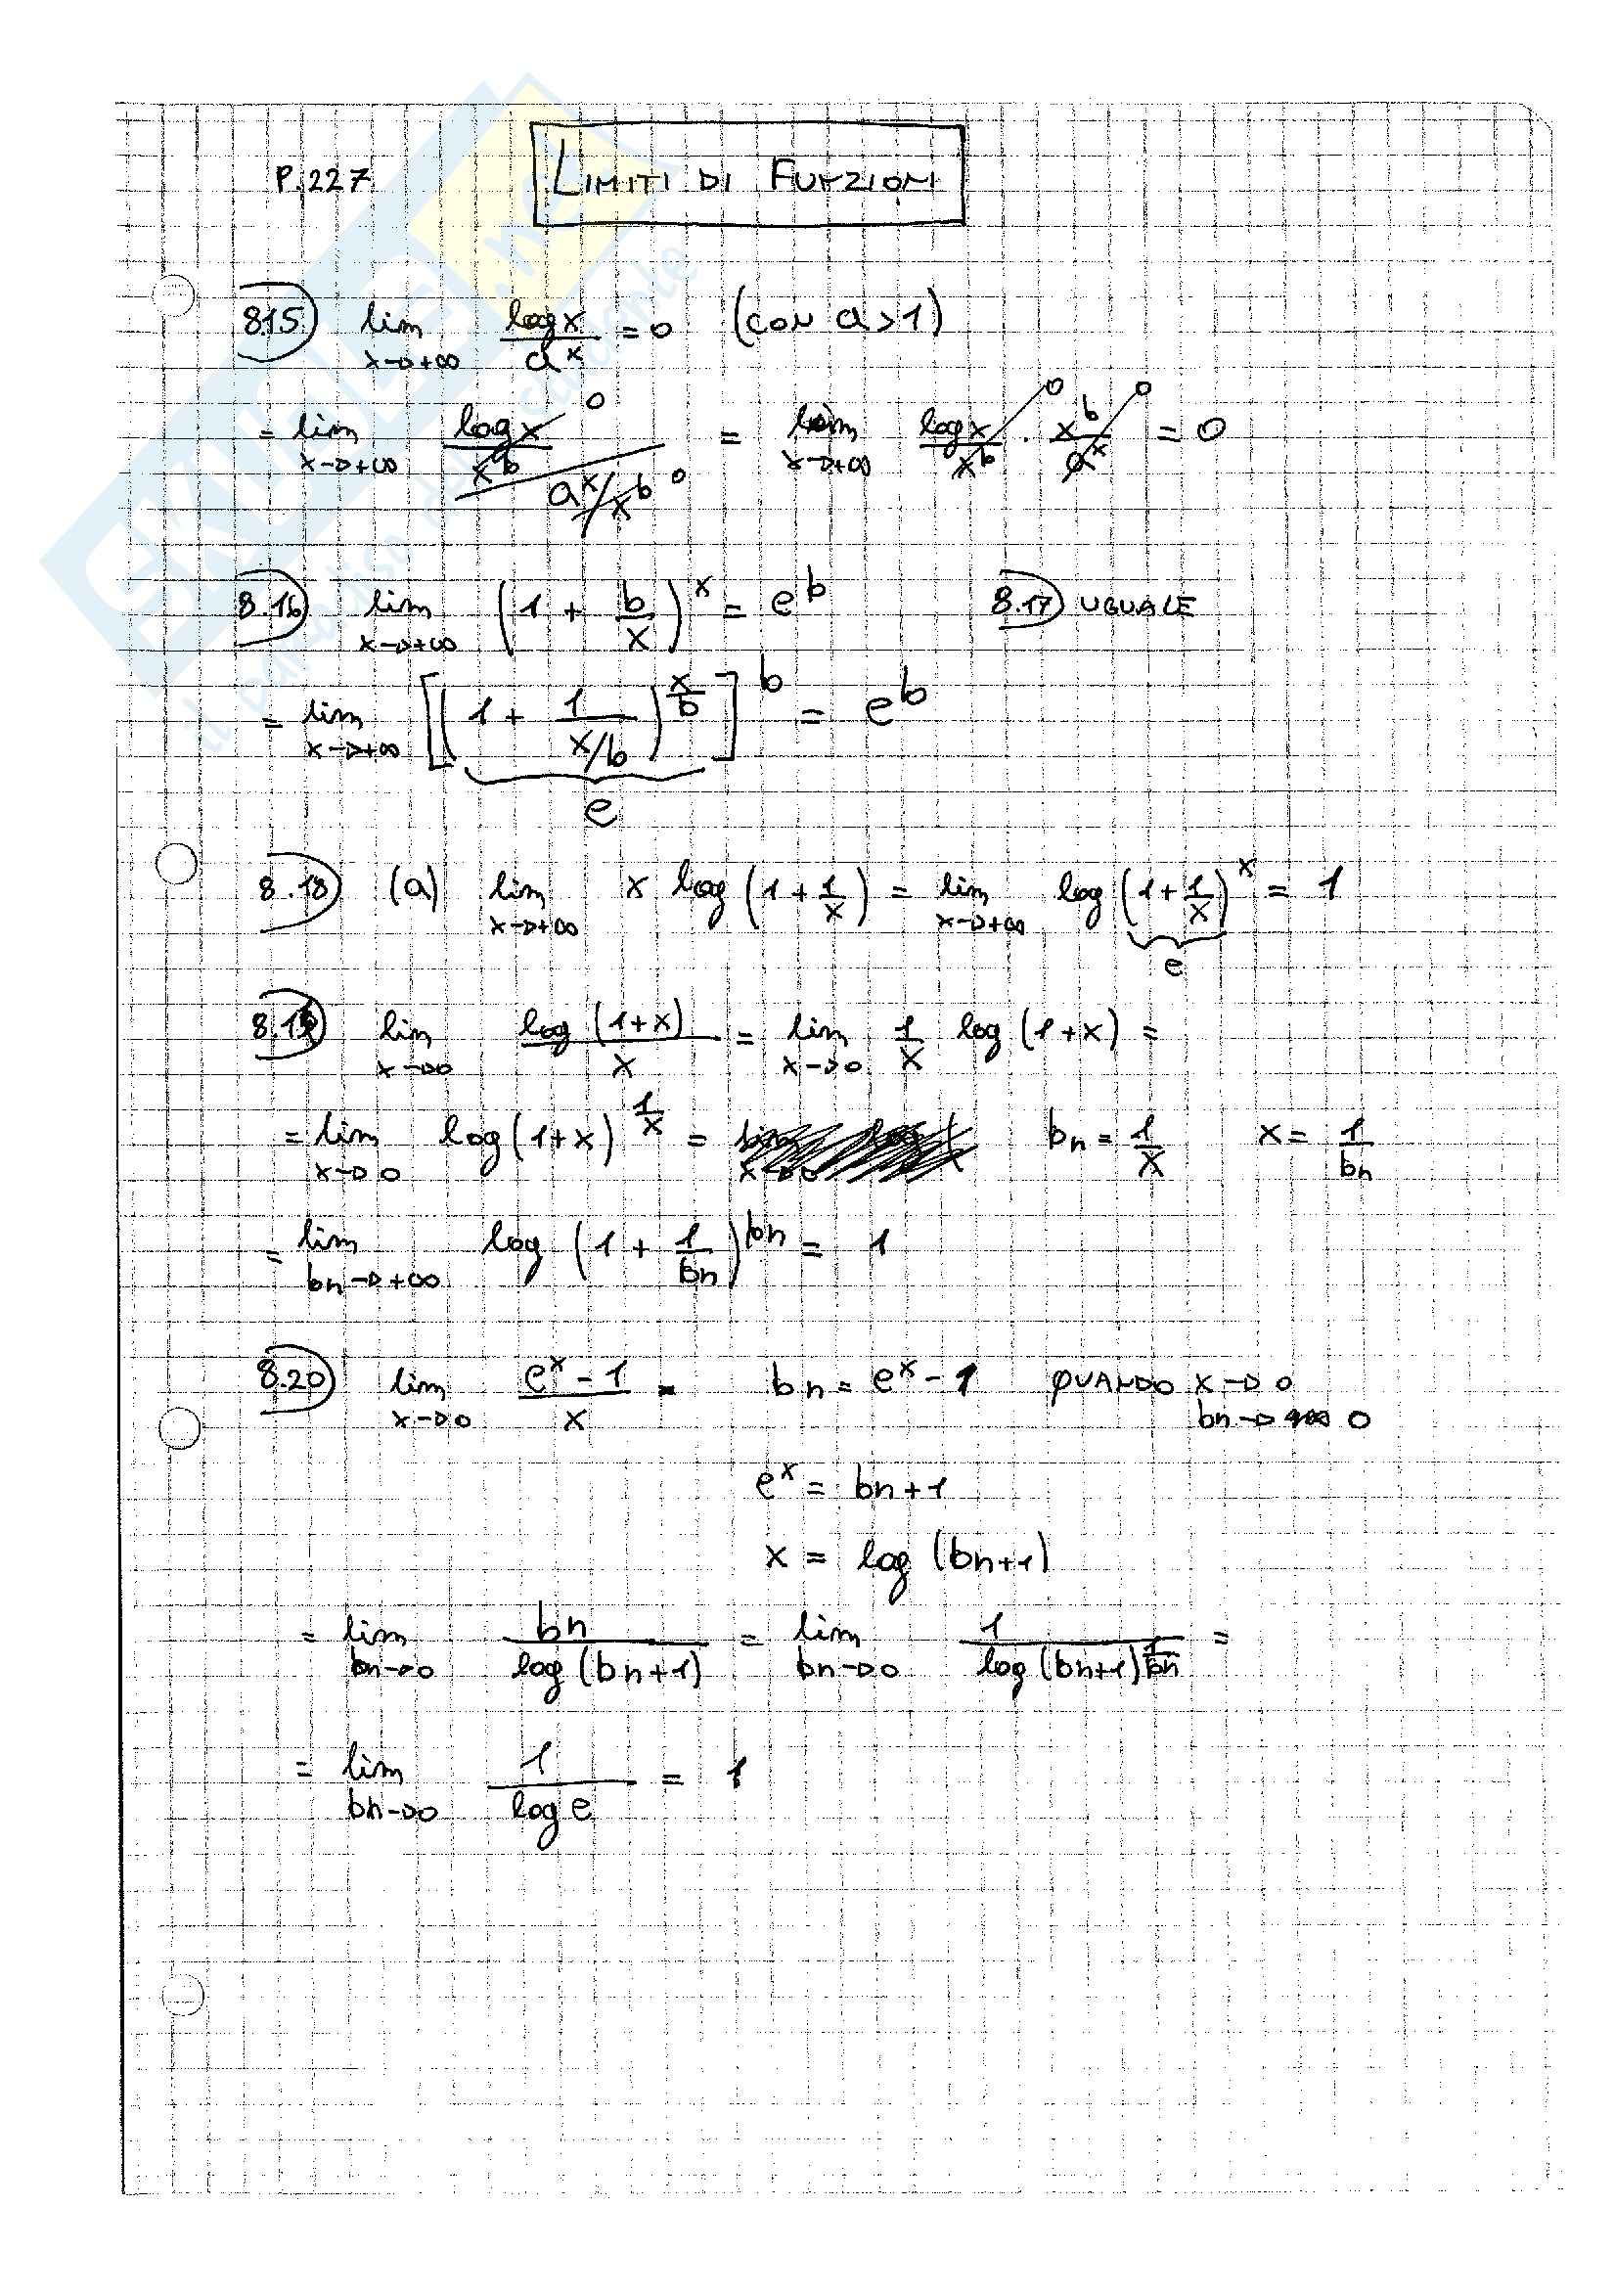 P.227 LIMITI DI FUNZIONI
8.15) lim x→+∞ log x / a^x = 0 (CON a > 1)
= lim x→+∞ (log x / x^b) 0 / (a^x / x^b) 0 = lim x→+∞ log x / x^b 0 · x^b / a^x 0 = 0
8.16) lim x→+∞ (1 + b/x)^x = e^b 8.17) UGUALE
= lim x→+∞ [(1 + 1/(x/b))^(x/b)]^b = e^b
e
8.18) (a) lim x→+∞ x log (1 + 1/x) = lim x→+∞ log (1 + 1/x)^x = 1
e
8.19) lim x→0 log (1+x) / x = lim x→0 1/x log (1+x) =
= lim x→0 log (1+x)^(1/x) = bn = 1/x x = 1/bn
= lim bn→+∞ log (1 + 1/bn)^bn = 1
8.20) lim x→0 (e^x - 1) / x = bn = e^x - 1 QUANDO x→0
bn→ 0
e^x = bn+1
x = log (bn+1)
= lim bn→0 bn / log (bn+1) = lim bn→0 1 / log (bn+1)^(1/bn) =
= lim bn→0 1 / log e = 1